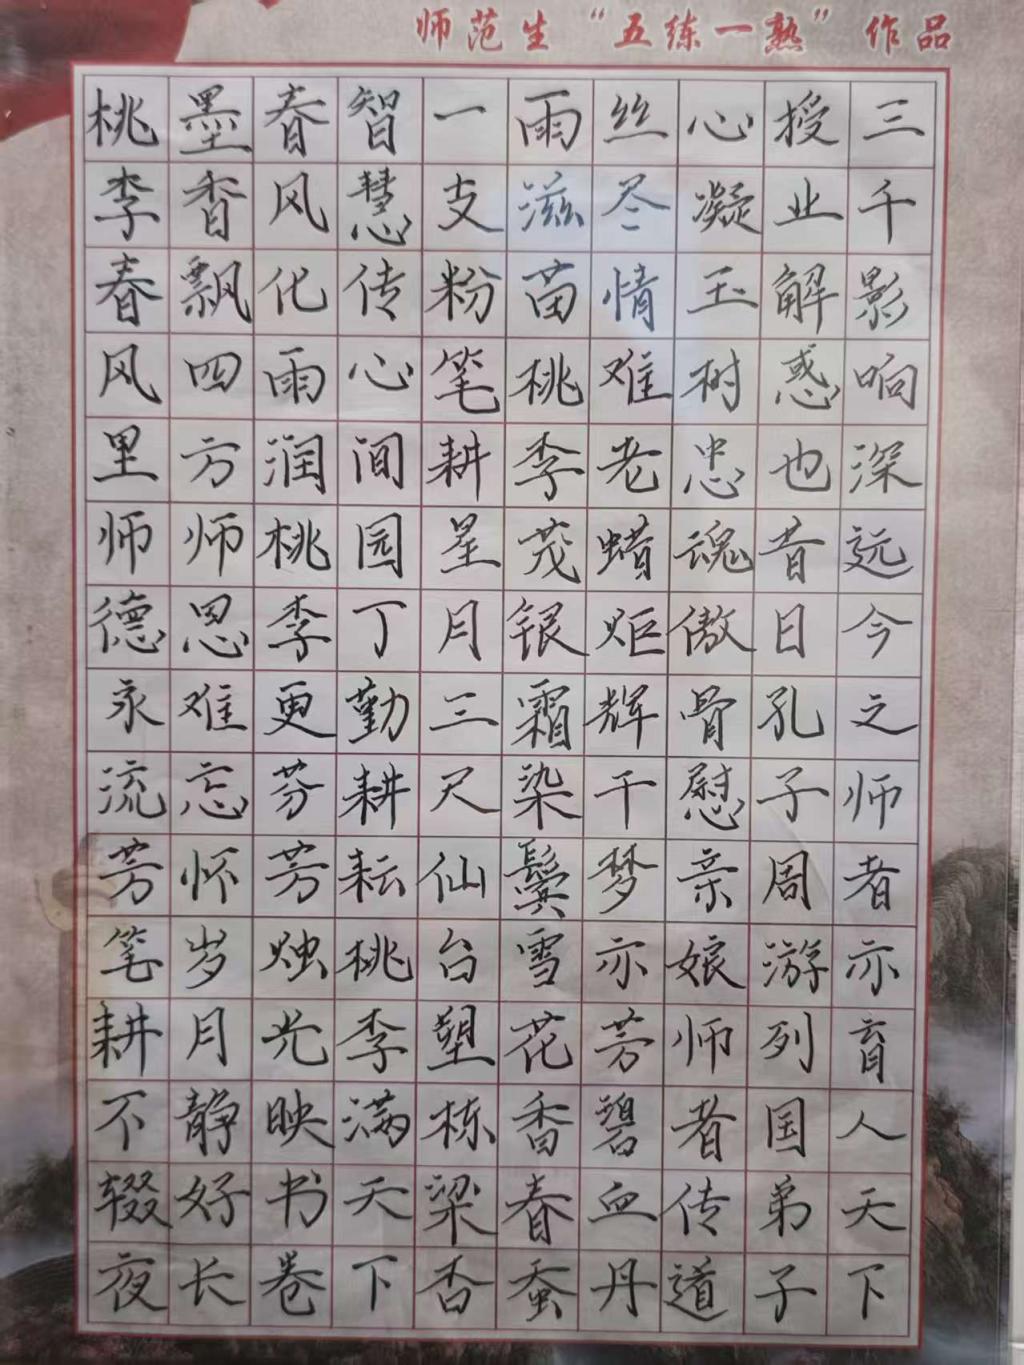 师范生“五练一熟”作品
桃李春风里师德永流芳笔耕不辍夜
墨香飘四方师恩难忘怀岁月静好长
春风化雨润桃李更芬芳烛光映书卷
智慧传心间园丁勤耕耘桃李满天下
一支粉笔耕星月三尺仙台塑栋梁杏
雨滋苗桃李茂银霜染鬓雪花香春蚕
丝尽情难老蜡炬辉干梦亦芳碧血丹
心凝玉树忠魂傲骨慰亲娘师者传道
授业解惑也昔日孔子周游列国弟子
三千影响深远今之师者亦育人天下